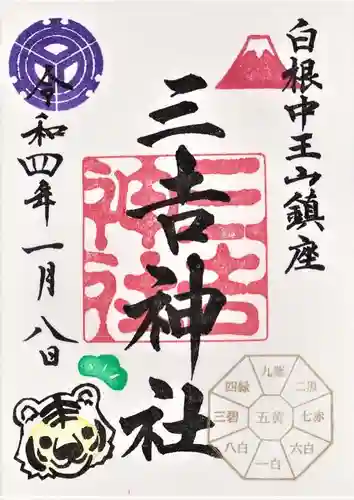 白根中王山鎮座
三吉神社
三吉
神社
令和四年一月八日
九紫
二黒
七赤
六白
一白
八白
三碧
四緑
五黄